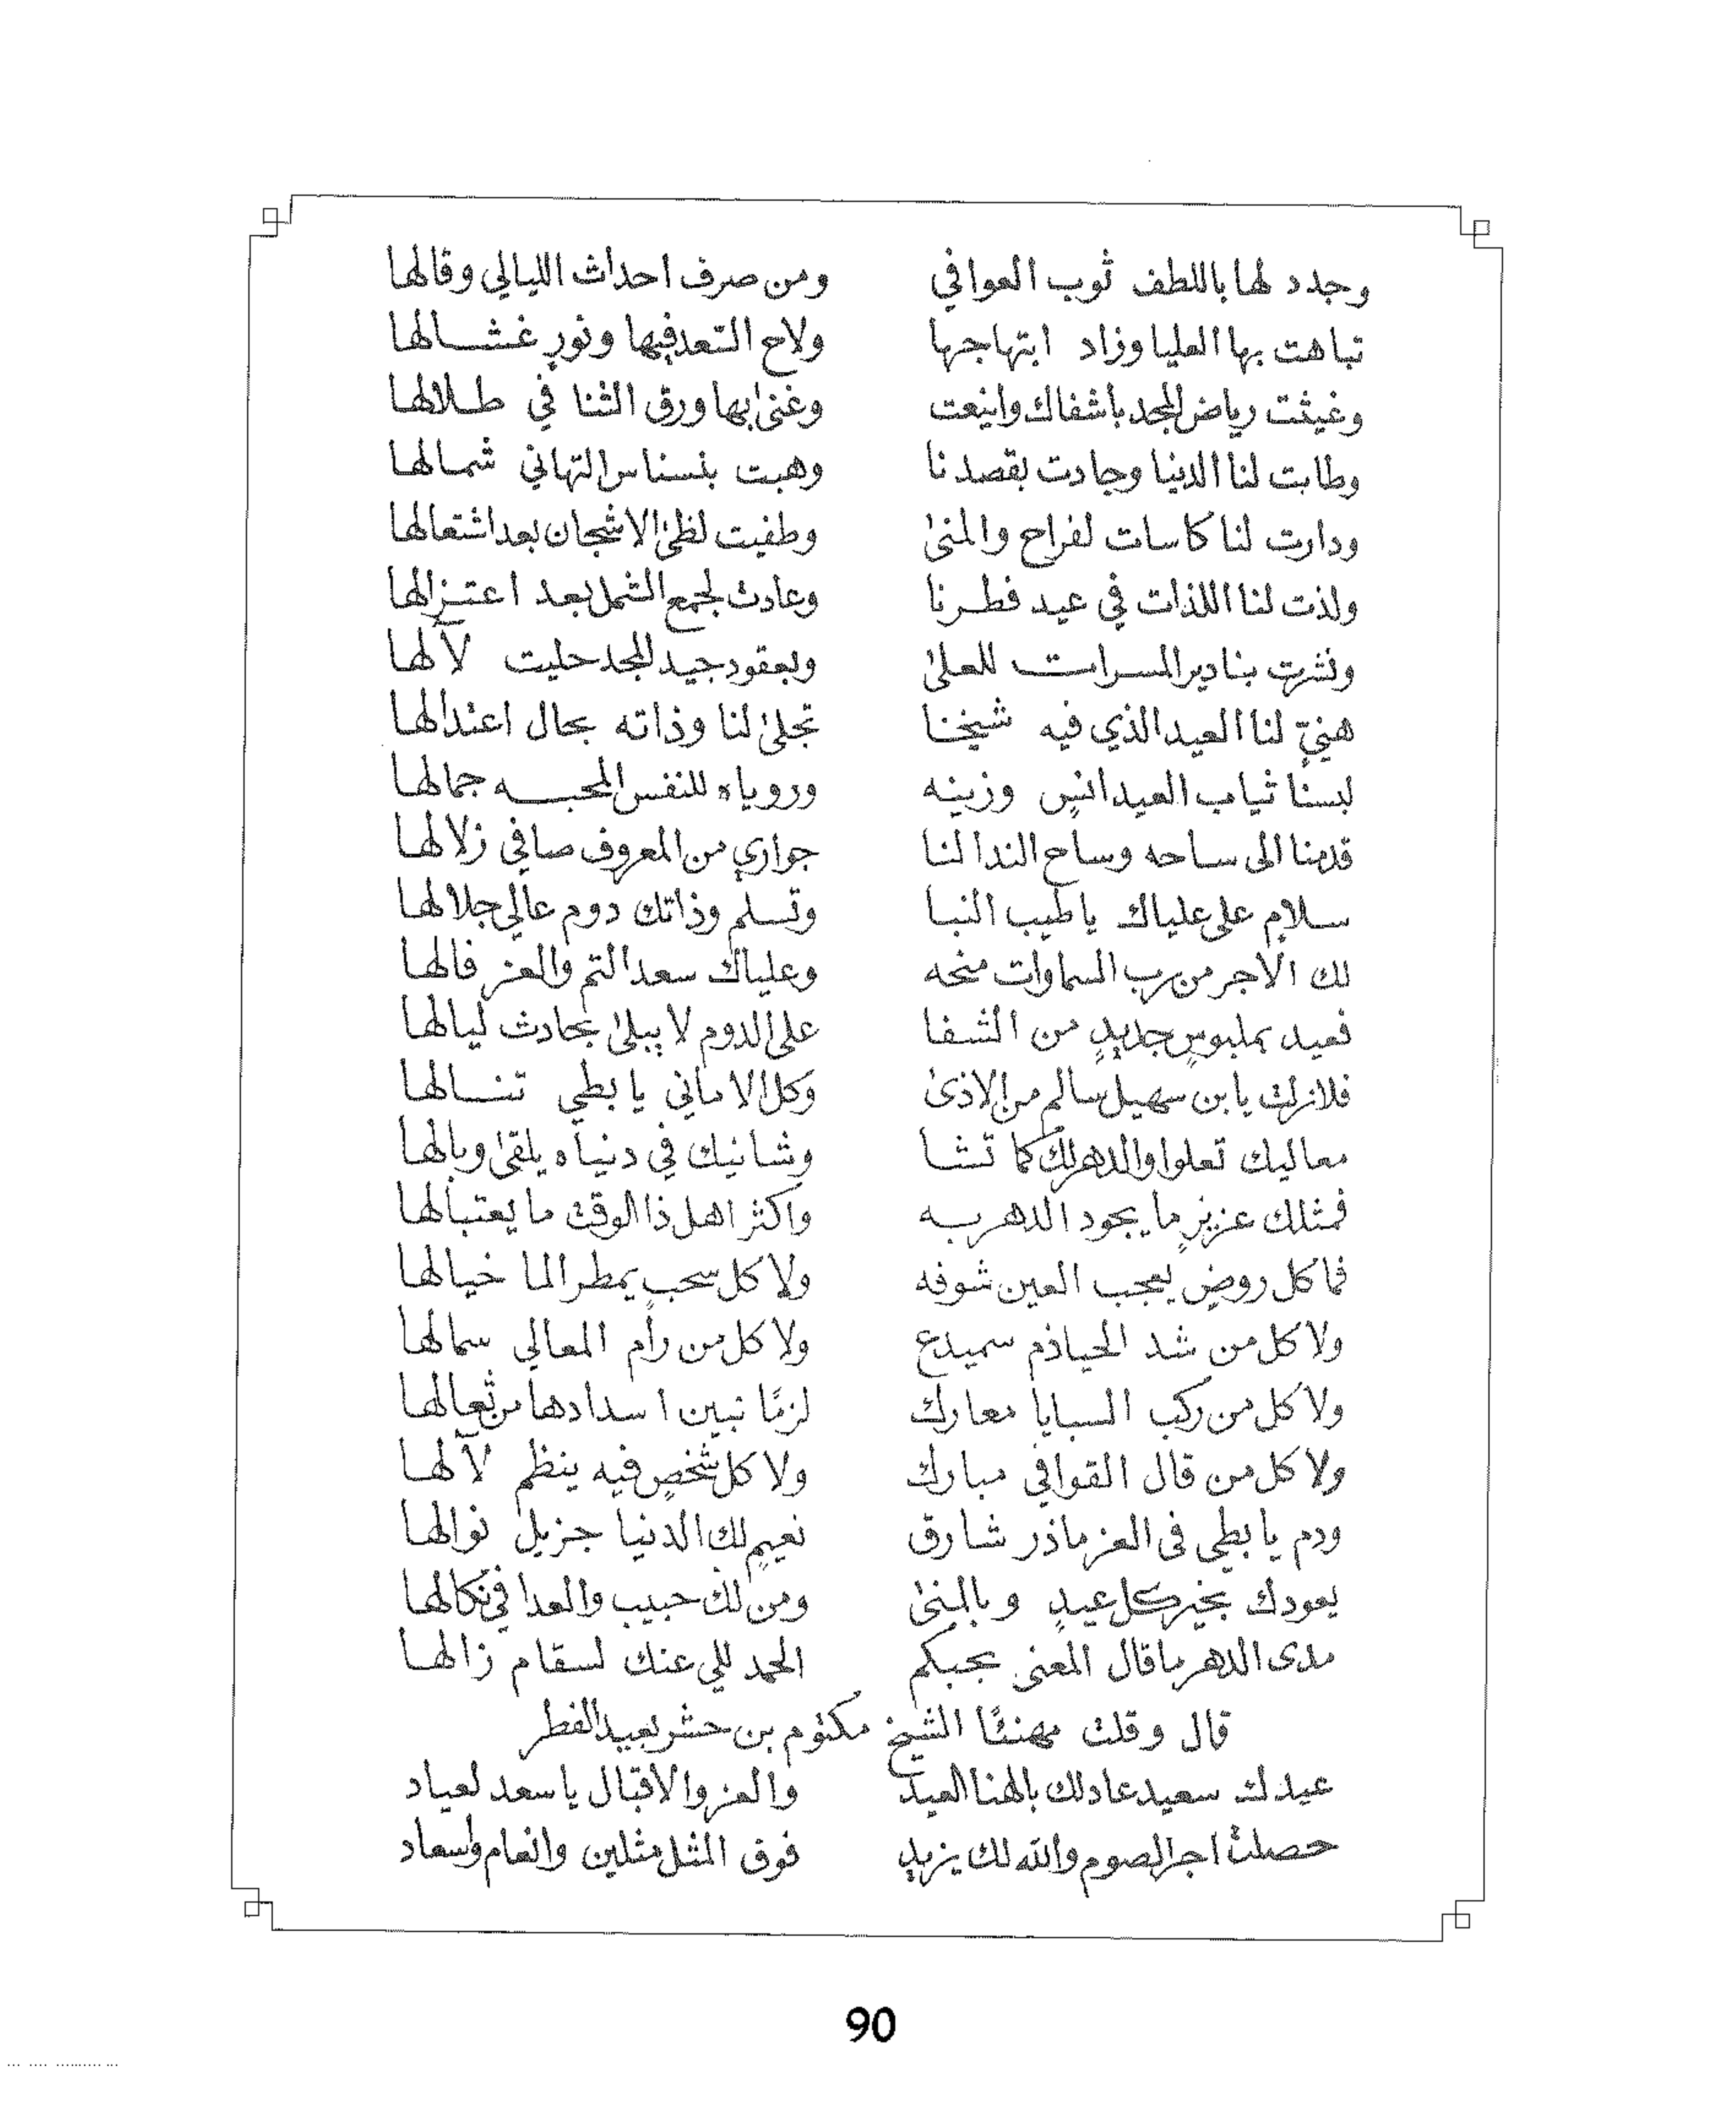 وجدد لها باللطف ثوب العوافي ومن صرف احداث الليالي وقالها
تباهت بها العليا وزاد ابتهاجها ولاح التعد فيها ونورٍ غشالها
وغيثت رياض المجد باشفاك واينعت وغنىٰ بها ورق الثنا في طلالها
وطابت لنا الدنيا وجادت بقصدنا وهبت بنسناس التهاني شمالها
ودارت لنا كاسات لفراح والمنىٰ وطفيت لظىٰ الاشجان بعد اشتعالها
ولذت لنا اللذات في عيد فطرنا وعادت لجمع الشمل بعد اعتزالها
ونشرت بنادير المسرات للعلىٰ وبعقود جيد المجد حليت لآلها
هنيٍّ لنا العيد الذي فيه شيخنا تجلىٰ لنا وذاته بحال اعتدالها
لبسنا ثياب العيد انسٍ وزينه ورؤياه للنفس المحبه جمالها
قدمنا الى ساحه وساح الندا لنا جواري من المعروف صافي زلالها
سلامٍ على علياك يا طيب النبا وتسلم وذاتك دوم عالي جلالها
لك الاجر من رب السماوات منحه وعلياك سعد التم والعز فالها
فعيد بملبوسٍ جديدٍ من الشفا على الدوم لا يبلىٰ بحادث ليالها
فلازلت يا بن سهيل سالم من الاذىٰ وكل الاماني يا بطي تنالها
معاليك تعلوا والدهر لك كما تشا وشانيك في دنياه يلقىٰ وبالها
فمثلك عزيزٍ ما يجود الدهر به واكثر اهل ذا الوقت ما يعتبالها
فما كل روضٍ يعجب العين شوفه ولا كل سحبٍ يمطر الما خيالها
ولا كل من شد الحياذم سميدع ولا كل من رام المعالي سمالها
ولا كل من ركب السبايا معارك لزمًا نبين اسدادها من ثعالها
ولا كل من قال القوافي مبارك ولا كل شخصٍ فيه ينظم لآلها
ودم يا بطي في العز ما ذر شارق نعيمٍ لك الدنيا جزيل نوالها
يعودك بخير كل عيدٍ وبالمنىٰ ومن لك حبيب والعدا في نكالها
مدى الدهر ما قال المعنى بحبكم الحمد للي عنك لسقام زالها
قال وقلت مهنئًا الشيخ مكتوم بن حشر بعيد الفطر
عيدك سعيد عاد لك بالهنا العيد والعز والاقبال يا سعد لعياد
حصلت اجر الصوم والله لك يزيد فوق المثل مثلين وانعام واسعاد
90